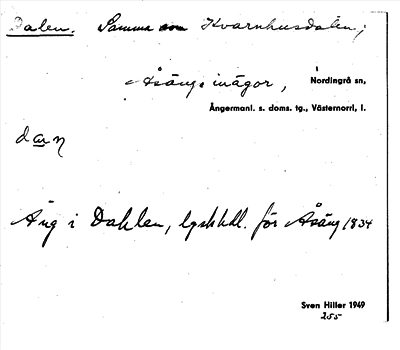 Dalen. Samma som Kvarnhusdalen;
Åsängs inägor, i Nordingrå sn,
Ångermanl. s. doms. tg., Västernorrl. l.
dan
Äng i Dahlen, lgskhdl. för Åsäng 1834
Sven Hiller 1949
255